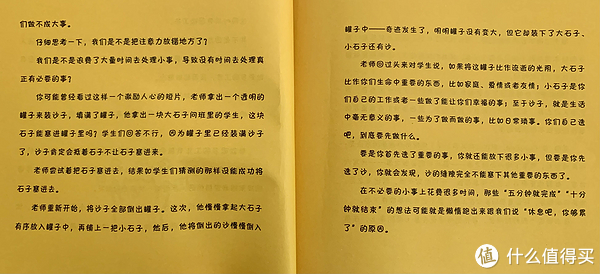 们做不成大事。
仔细思考一下，我们是不是把注意力放错地方了？
我们是不是浪费了大量时间去处理小事，导致没有时间去处理真
正有必要的事？
你可能曾经看过这样一个激励人心的短片，老师拿出一个透明的
罐子来装沙子，填满了罐子，他拿出一块大石子问班里的学生，这块
石子能塞进罐子里吗？学生们回答不行，因为罐子里已经装满沙子
了，沙子肯定会抵着石子不让石子塞进来。
老师尝试着把石子塞进去，结果如学生们猜测的那样没能成功将
石子塞进去。
老师重新开始，将沙子全部倒出罐子。这次，他慢慢拿起大石子
有序放入罐子中，再铺上一把小石子，然后，他将倒出的沙慢慢倒入
罐子中——奇迹发生了，明明罐子没有变大，但它却装下了大石子、
小石子还有沙。
老师回过头来对学生说，如果将这罐子比作流逝的光阴，大石子
比作你们生命中重要的东西，比如家庭、爱情或老友情；小石子是你
们自己的工作或者一些做了能让你们幸福的事；至于沙子，就是生活
中毫无意义的事，一些为了做而做的事，比如日常琐事。你们自己选
吧，到底要先做什么。
要是你首先选了重要的事，你就还能放下很多小事，但要是你先
选了沙，你就会发现，沙的缝隙完全不能塞下其他重要的东西了。
在不必要的小事上花费很多时间，那些“五分钟就完成”“十分
钟就结束”的想法可能就是懒惰跑出来跟我们说“休息吧，你够累
了”的原因。
值 什么值得买